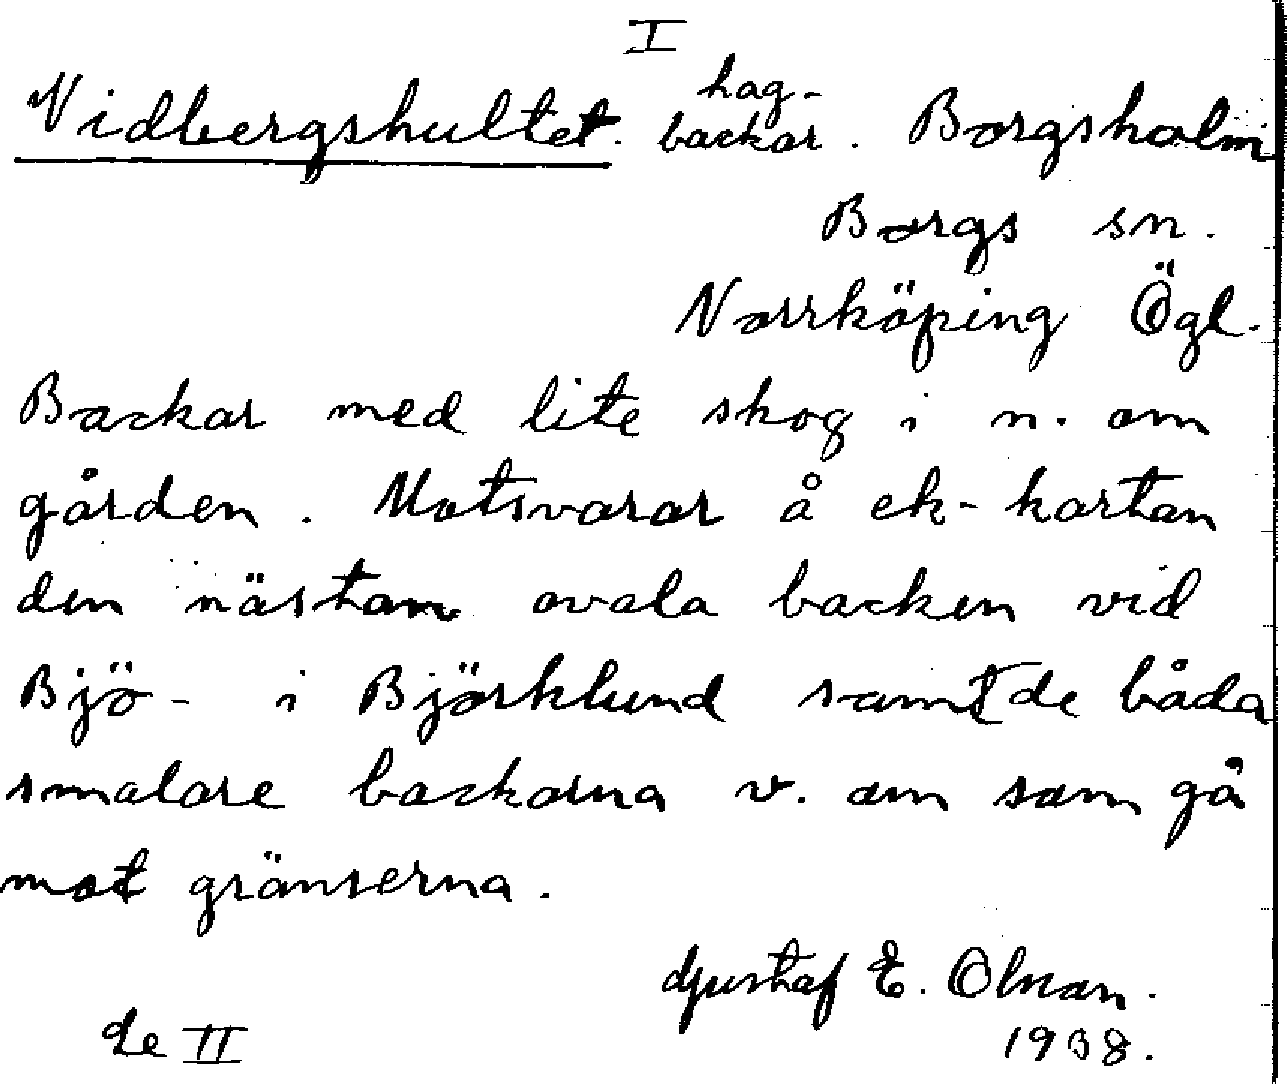 I
Vidbergshultet. hag-
backar. Borgsholm
Borgs sn.
Norrköping Ögl.
Backar med lite skog i n. om
gården. Motsvarar å ek-kartan
den nästan ovala backen vid
Bjö- i Björklund samt de båda
smalare backarna v. om som gå
mot gränserna.
Gustaf E. Olson.
1938.
Se II